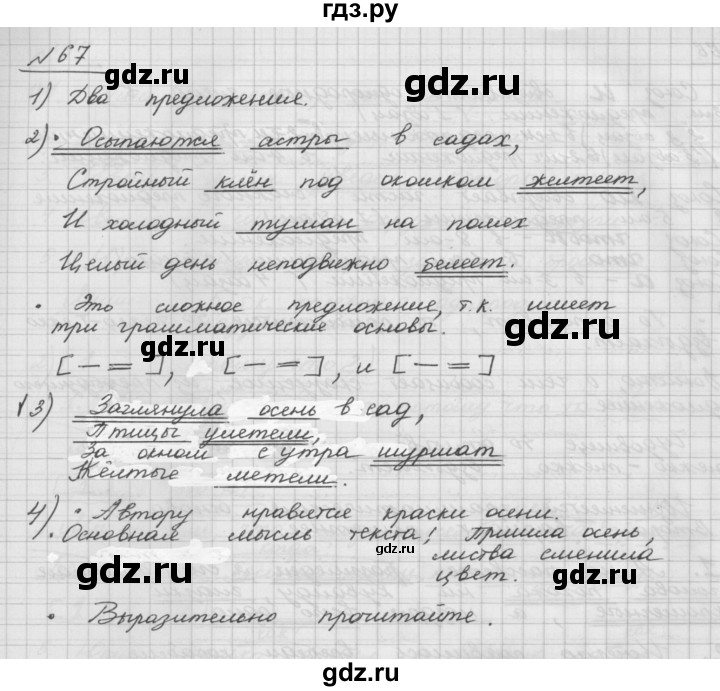 гдз.ру
№67
1) Два предложения.
2) • Осыпаются астры в садах,
Стройный клён под окошком желтеет,
И холодный туман на полях
Целый день неподвижно белеет.
• Это сложное предложение, т.к. имеет
три грамматические основы.
[— =], [— =], и [— =]
3) Заглянула осень в сад,
Птицы улетели,
За окном с утра шуршат
Жёлтые метели.
4) • Автору нравятся краски осени.
• Основная мысль текста: Пришла осень,
листва сменила
цвет.
• Выразительно прочитайте.
gdz.ru
gdz.ru
gdz.ru
gdz.ru
gdz.ru
gdz.ru
gdz.ru
gdz.ru
gdz.ru
gdz.ru